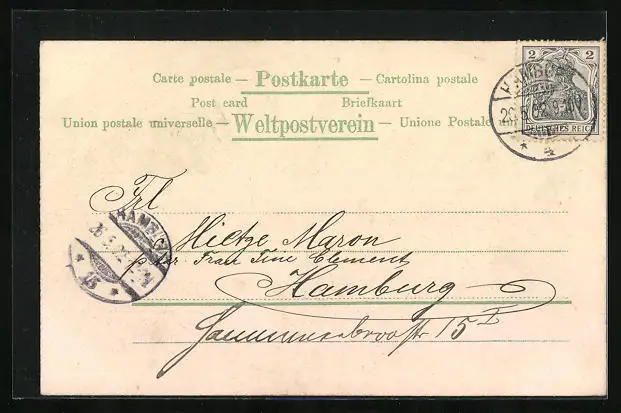 Carte postale — Postkarte — Cartolina postale
Post card Briefkaart
Union postale universelle — Weltpostverein — Unione Postale
2 2
DEUTSCHES REICH
HAMBURG
Frl
HAMBURG
15
Hietze Maron
Frau Tine Clement
Hamburg
15 I